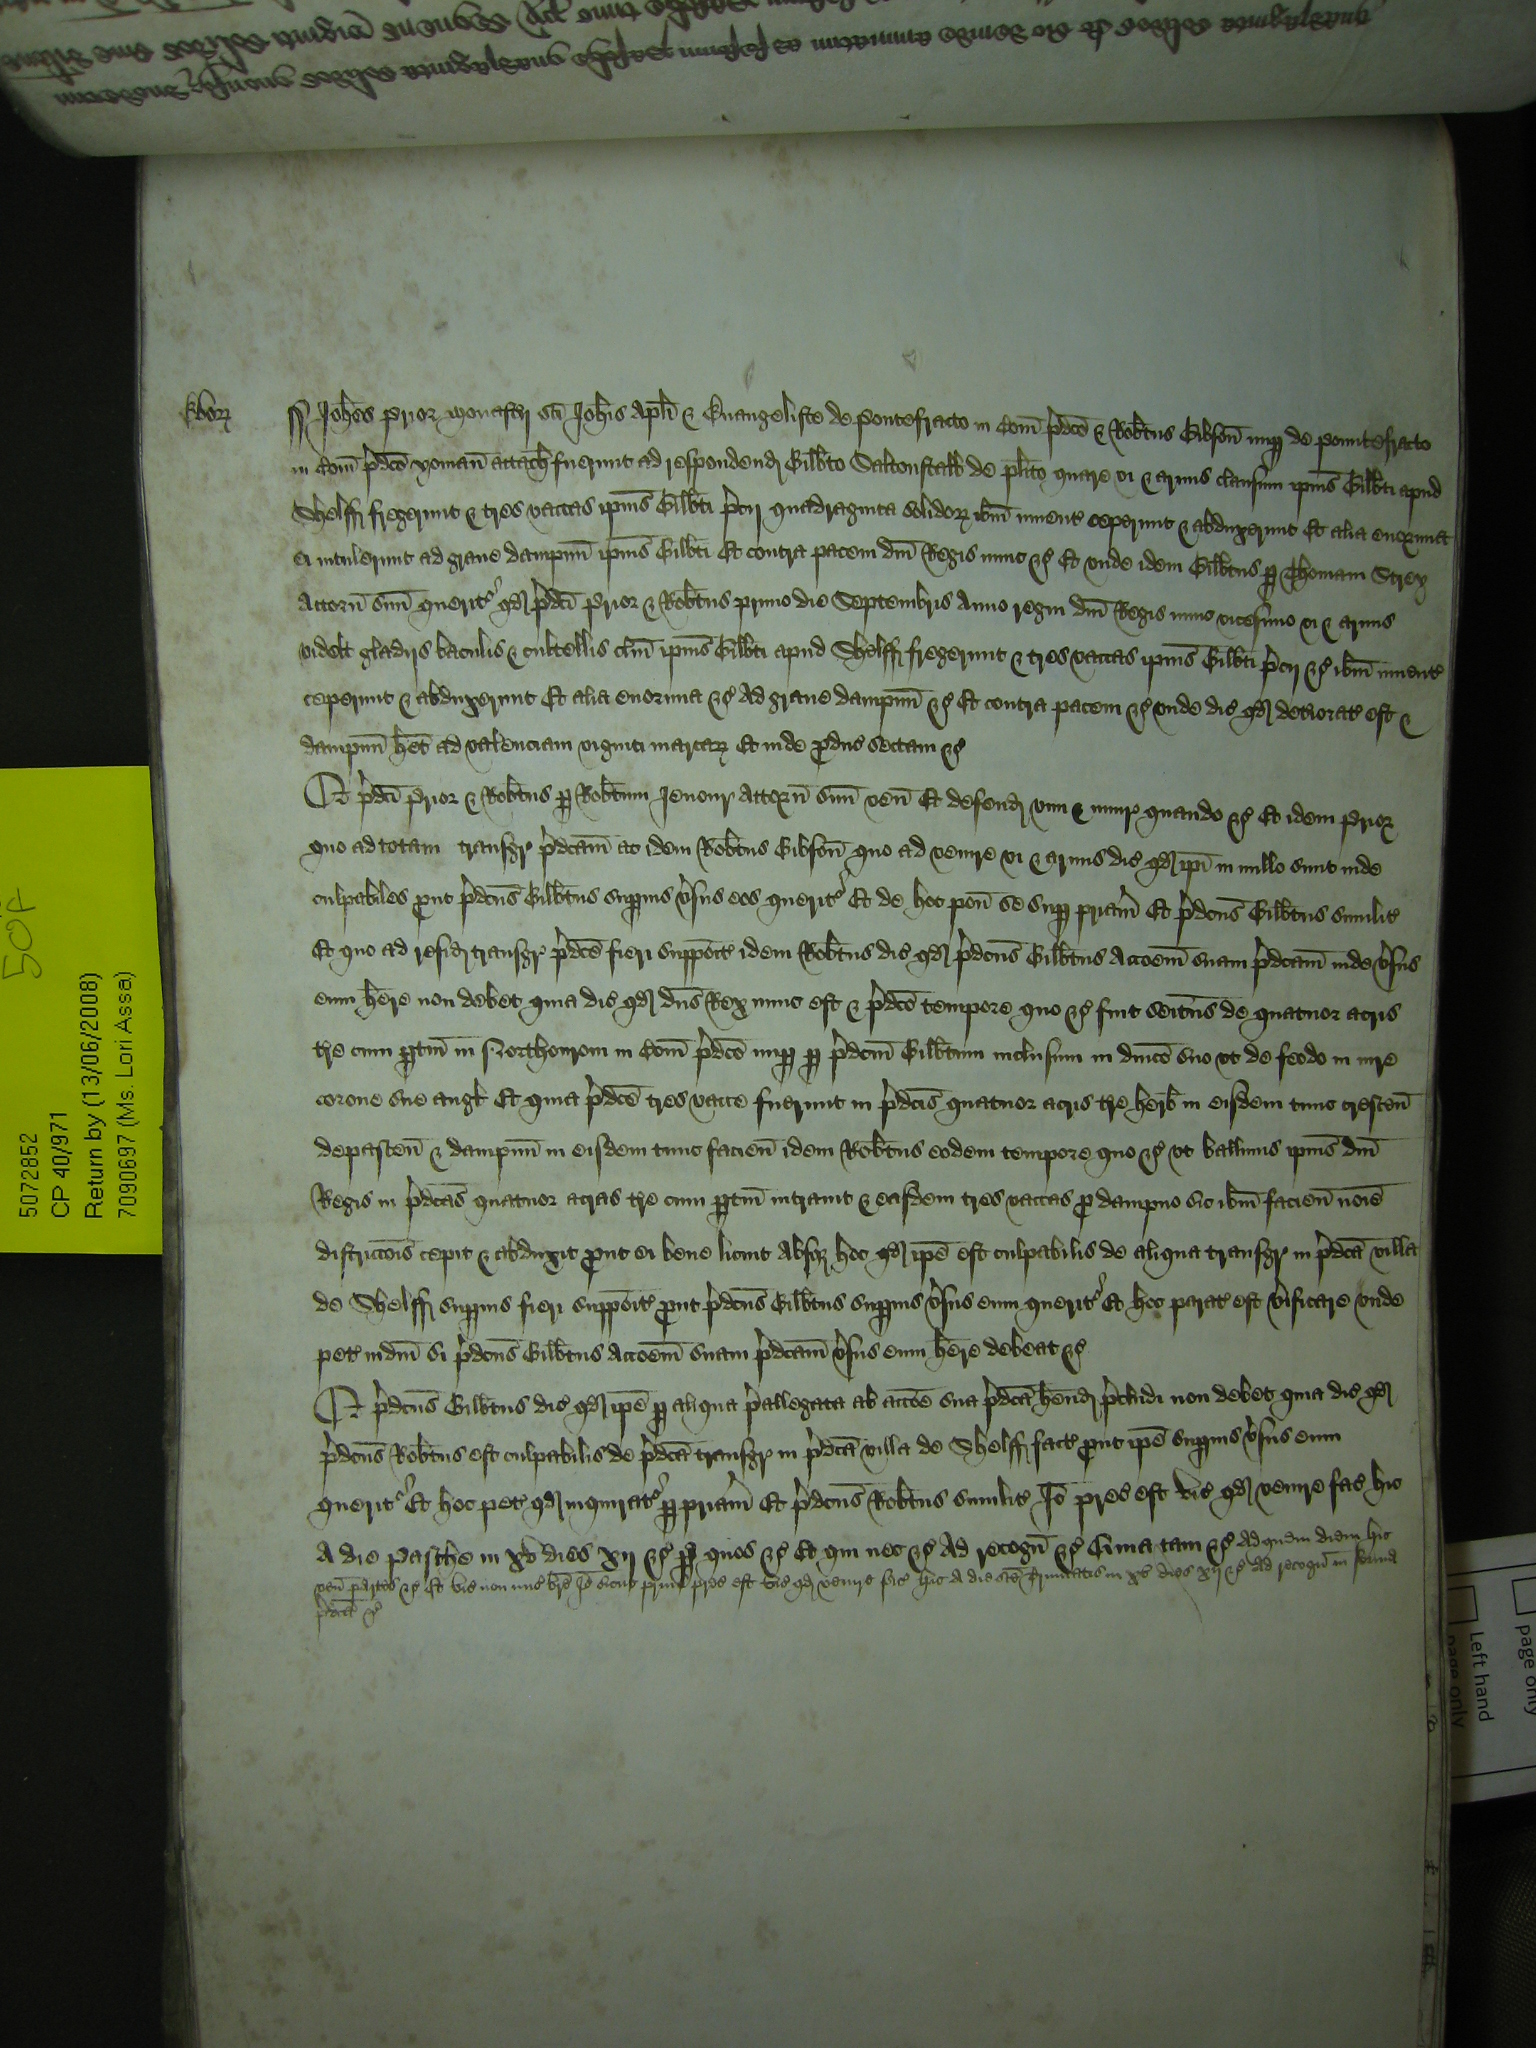 Ebor
ss Joh̄es Prior Monast̄ij sc̄i Joh̄is Apl̄i & Euangeliste de Pontefracto in Com̄ p̄dc̄o & Rob̄tus Gibson̄ nup̱ de Pountefracto
in Com̄ p̄dc̄o yoman̄ attach̄ fuerunt ad respondend̄ Gilb̄to Saltonstall de pl̄ito quare vi & armis clausum ip̄ius Gilb̄ti apud
Shelff fregerunt & tres vaccas ip̄ius Gilb̄ti p̄cij quadraginta solidoꝝ ib̄m inuent̄ ceperunt & abduxerunt Et alia enormia
ei intulerunt ad graue dampnū ip̄ius Gilb̄ti Et contra pacem dn̄i Regis nunc &c̄ Et vnde idem Gilb̄tus p̱ Thomam Strey
Attorn̄ suū querit̄ qd̄ p̄dc̄i Prior & Rob̄tus primo die Septembris Anno regni dn̄i Regis nunc vicesimo vi & armis
videlt̄ gladijs baculis & cultellis cl̄m ip̄ius Gilb̄ti apud Shelff fregerunt & tres vaccas ip̄ius Gilb̄ti p̄cij &c̄ ib̄m inuent̄
ceperunt & abduxerunt Et alia enormia &c̄ Ad graue dampnū &c̄ Et contra pacem &c̄ vnde dic̄ qd̄ deteriorat̄ est &
dampnū h̄et ad valenciam viginti marcaꝝ Et inde ꝓduc̄ sectam &c̄
Et p̄dc̄i Prior & Rob̄tus p̱ Rob̄tum Jenour Attorn̄ suū ven̄ Et defend̄ vim & iniur̄ quando &c̄ Et idem Prior
quo ad totam transgr̄ p̄dc̄am ac idem Rob̄tus Gibson̄ quo ad venire vi & armis dic̄ qd̄ ip̄i in nullo sunt inde
culpabiles ꝓut p̄dc̄us Gilb̄tus sup̱ius v̄sus eos querit̄ Et de hoc pon̄ se sup̱ pr̄iam Et p̄dc̄us Gilb̄tus similit̄
Et quo ad resid̄ transgr̄ p̄dc̄e fieri supp̄oit̄ idem Rob̄tus dic̄ qd̄ p̄dc̄us Gilb̄tus Acc̄oem suam p̄dc̄am inde v̄sus
eum h̄ere non debet quia dic̄ qd̄ dn̄s Rex nunc est & p̄dc̄o tempore quo &c̄ fuit seit̄us de quatuor acris
t̄re cum p̱tiñ in Northourom in Com̄ p̄dc̄o nup̱ p̱ p̄dc̄m Gilb̄tum inclusum in dn̄ico suo vt de feodo in iure
corone sue angl̄ Et quia p̄dc̄e tres vacce fuerunt in p̄dc̄is quatuor acris t̄re herb̄ in eisdem tunc crescen̄
depascen̄ & dampnū in eisdem tunc facien̄ idem Rob̄tus eodem tempore quo &c̄ vt balliuus ip̄ius dn̄i
Regis in p̄dc̄as quatuor acras t̄re cum p̱tiñ intrauit & easdem tres vaccas ꝓ dampno sic ib̄m facien̄ noīe
districc̄ois cepit & abduxit ꝓut ei bene licuit Absqꝫ hoc qd̄ ip̄e est culpabilis de aliqua transgr̄ in p̄dc̄a villa
de Shelff sup̱ius fieri supp̄oit̄ ꝓut p̄dc̄us Gilb̄tus sup̱ius v̄sus eum querit̄ Et hoc parat̄ est v̄ificare vnde
pet̄ iudm̄ si p̄dc̄us Gilb̄tus Acc̄oem suam p̄dc̄am v̄sus eum h̄ere debeat &c̄
Et p̄dc̄us Gilb̄tus dic̄ qd̄ ip̄e p̱ aliqua p̄allegata ab acc̄oe sua p̄dc̄a h̄end̄ p̄cludi non debet quia dic̄ qd̄
p̄dc̄us Rob̄tus est culpabilis de p̄dc̄a transgr̄ in p̄dc̄a villa de Shelff fact̄ ꝓut ip̄e sup̱ius v̄sus eum
querit̄ Et hoc pet̄ qd̄ inquirat̄ p̱ pr̄iam Et p̄dc̄us Rob̄tus similit̄ Io̅ prec̄ est vic̄ qd̄ venire fac̄ hic
A die Pasche in xv dies xij &c̄ p̱ quos &c̄ Et qui nec &c̄ Ad recogn̄ &c̄ Quia tam &c̄ Ad quem diem hic
ven̄ partes &c̄ Et vic̄ non mis̄ br̄e Io̅ sicut prius prec̄ est vic̄ qd̄ venire fac̄ hic A die sc̄e Trinitatis in xv dies xij &c̄ Ad recogn̄ in forma
p̄dc̄a &c̄
50F
5072852
CP 40/971
Return by (13/06/2008)
7090697 (Ms. Lori Assa)
page only
Left hand
page only